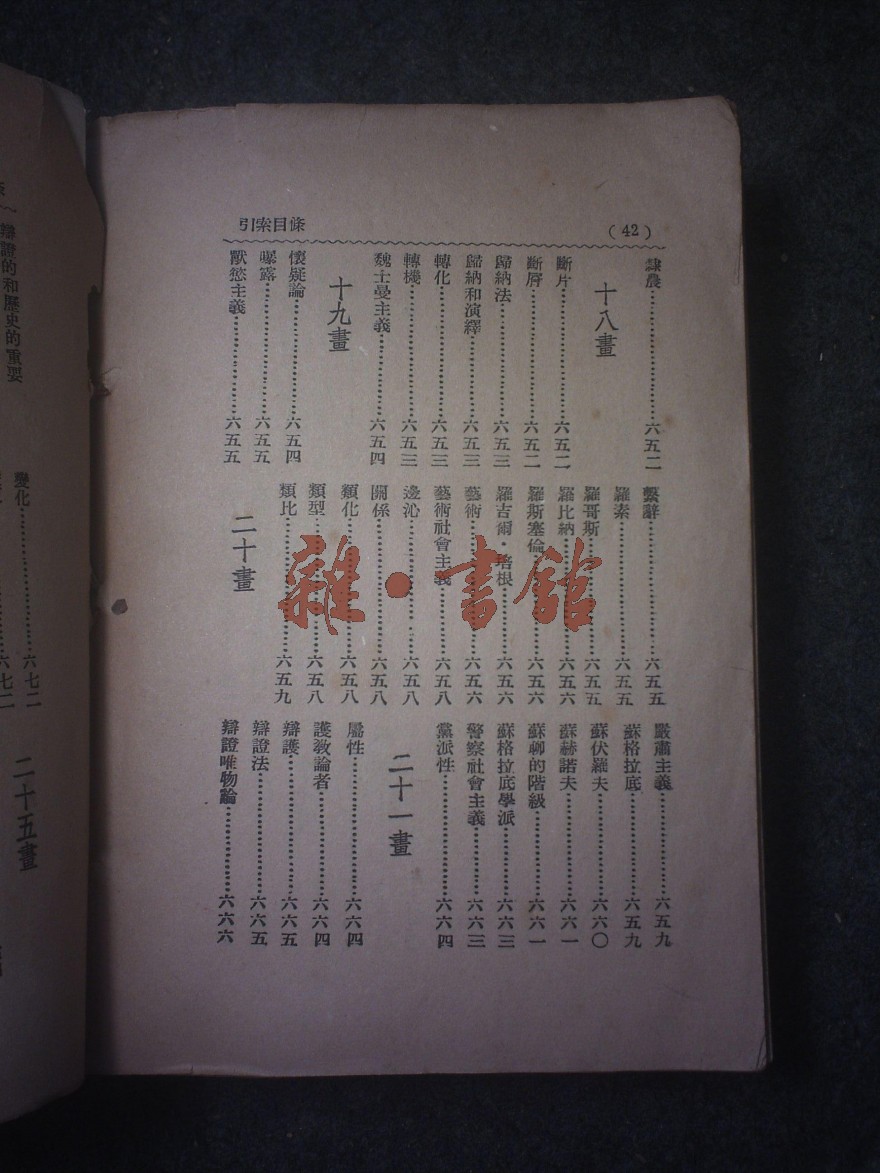 (42)
條目索引
隸農……六五二
十八畫
斷片……六五二
斷……六五二
歸納法……六五三
歸納和演繹……六五三
轉化……六五三
轉機……六五三
魏士曼主義……六五四
十九畫
懷疑論……六五四
曝露……六五五
獸慾主義……六五五
繫辭……六五五
羅素……六五五
羅哥斯……六五五
羅比納……六五六
羅斯塞倫……六五六
羅吉爾·培根……六五六
藝術……六五六
藝術社會主義……六五八
邊沁……六五八
關係……六五八
類化……六五八
類型……六五八
類比……六五九
二十畫
嚴肅主義……六五九
蘇格拉底……六五九
蘇伏羅夫……六六〇
蘇赫諾夫……六六一
蘇的階級……六六一
蘇格拉底學派……六六三
警察社會主義……六六三
黨派性……六六四
二十一畫
屬性……六六四
護教論者……六六四
辯護……六六五
辯證法……六六五
辯證唯物論……六六六
辯證的和歷史的重要
變化……六七二
六七二
二十五畫
雜·書館